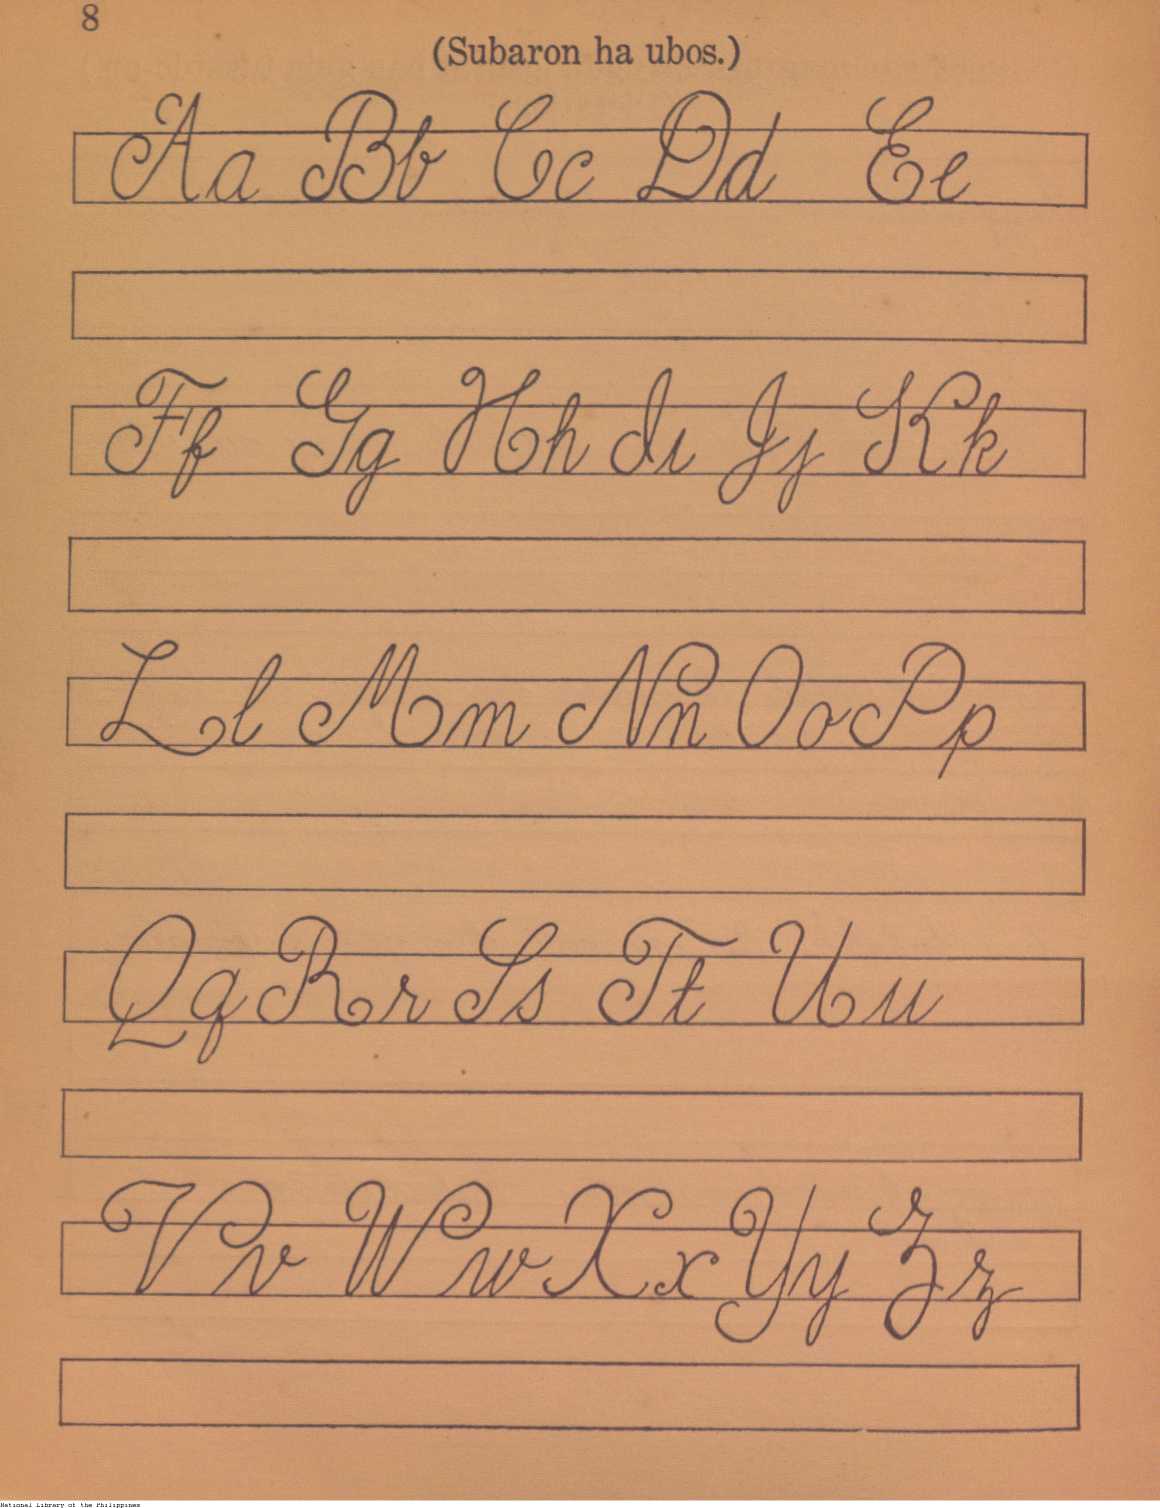 8
(Subaron ha ubos.)
Aa Bb Cc Dd Ee
Ff Gg Hh Ii Jj Kk
Ll Mm Nn Oo Pp
Qq Rr Ss Tt Uu
Vv Ww Xx Yy Zz
National Library of the Philippines